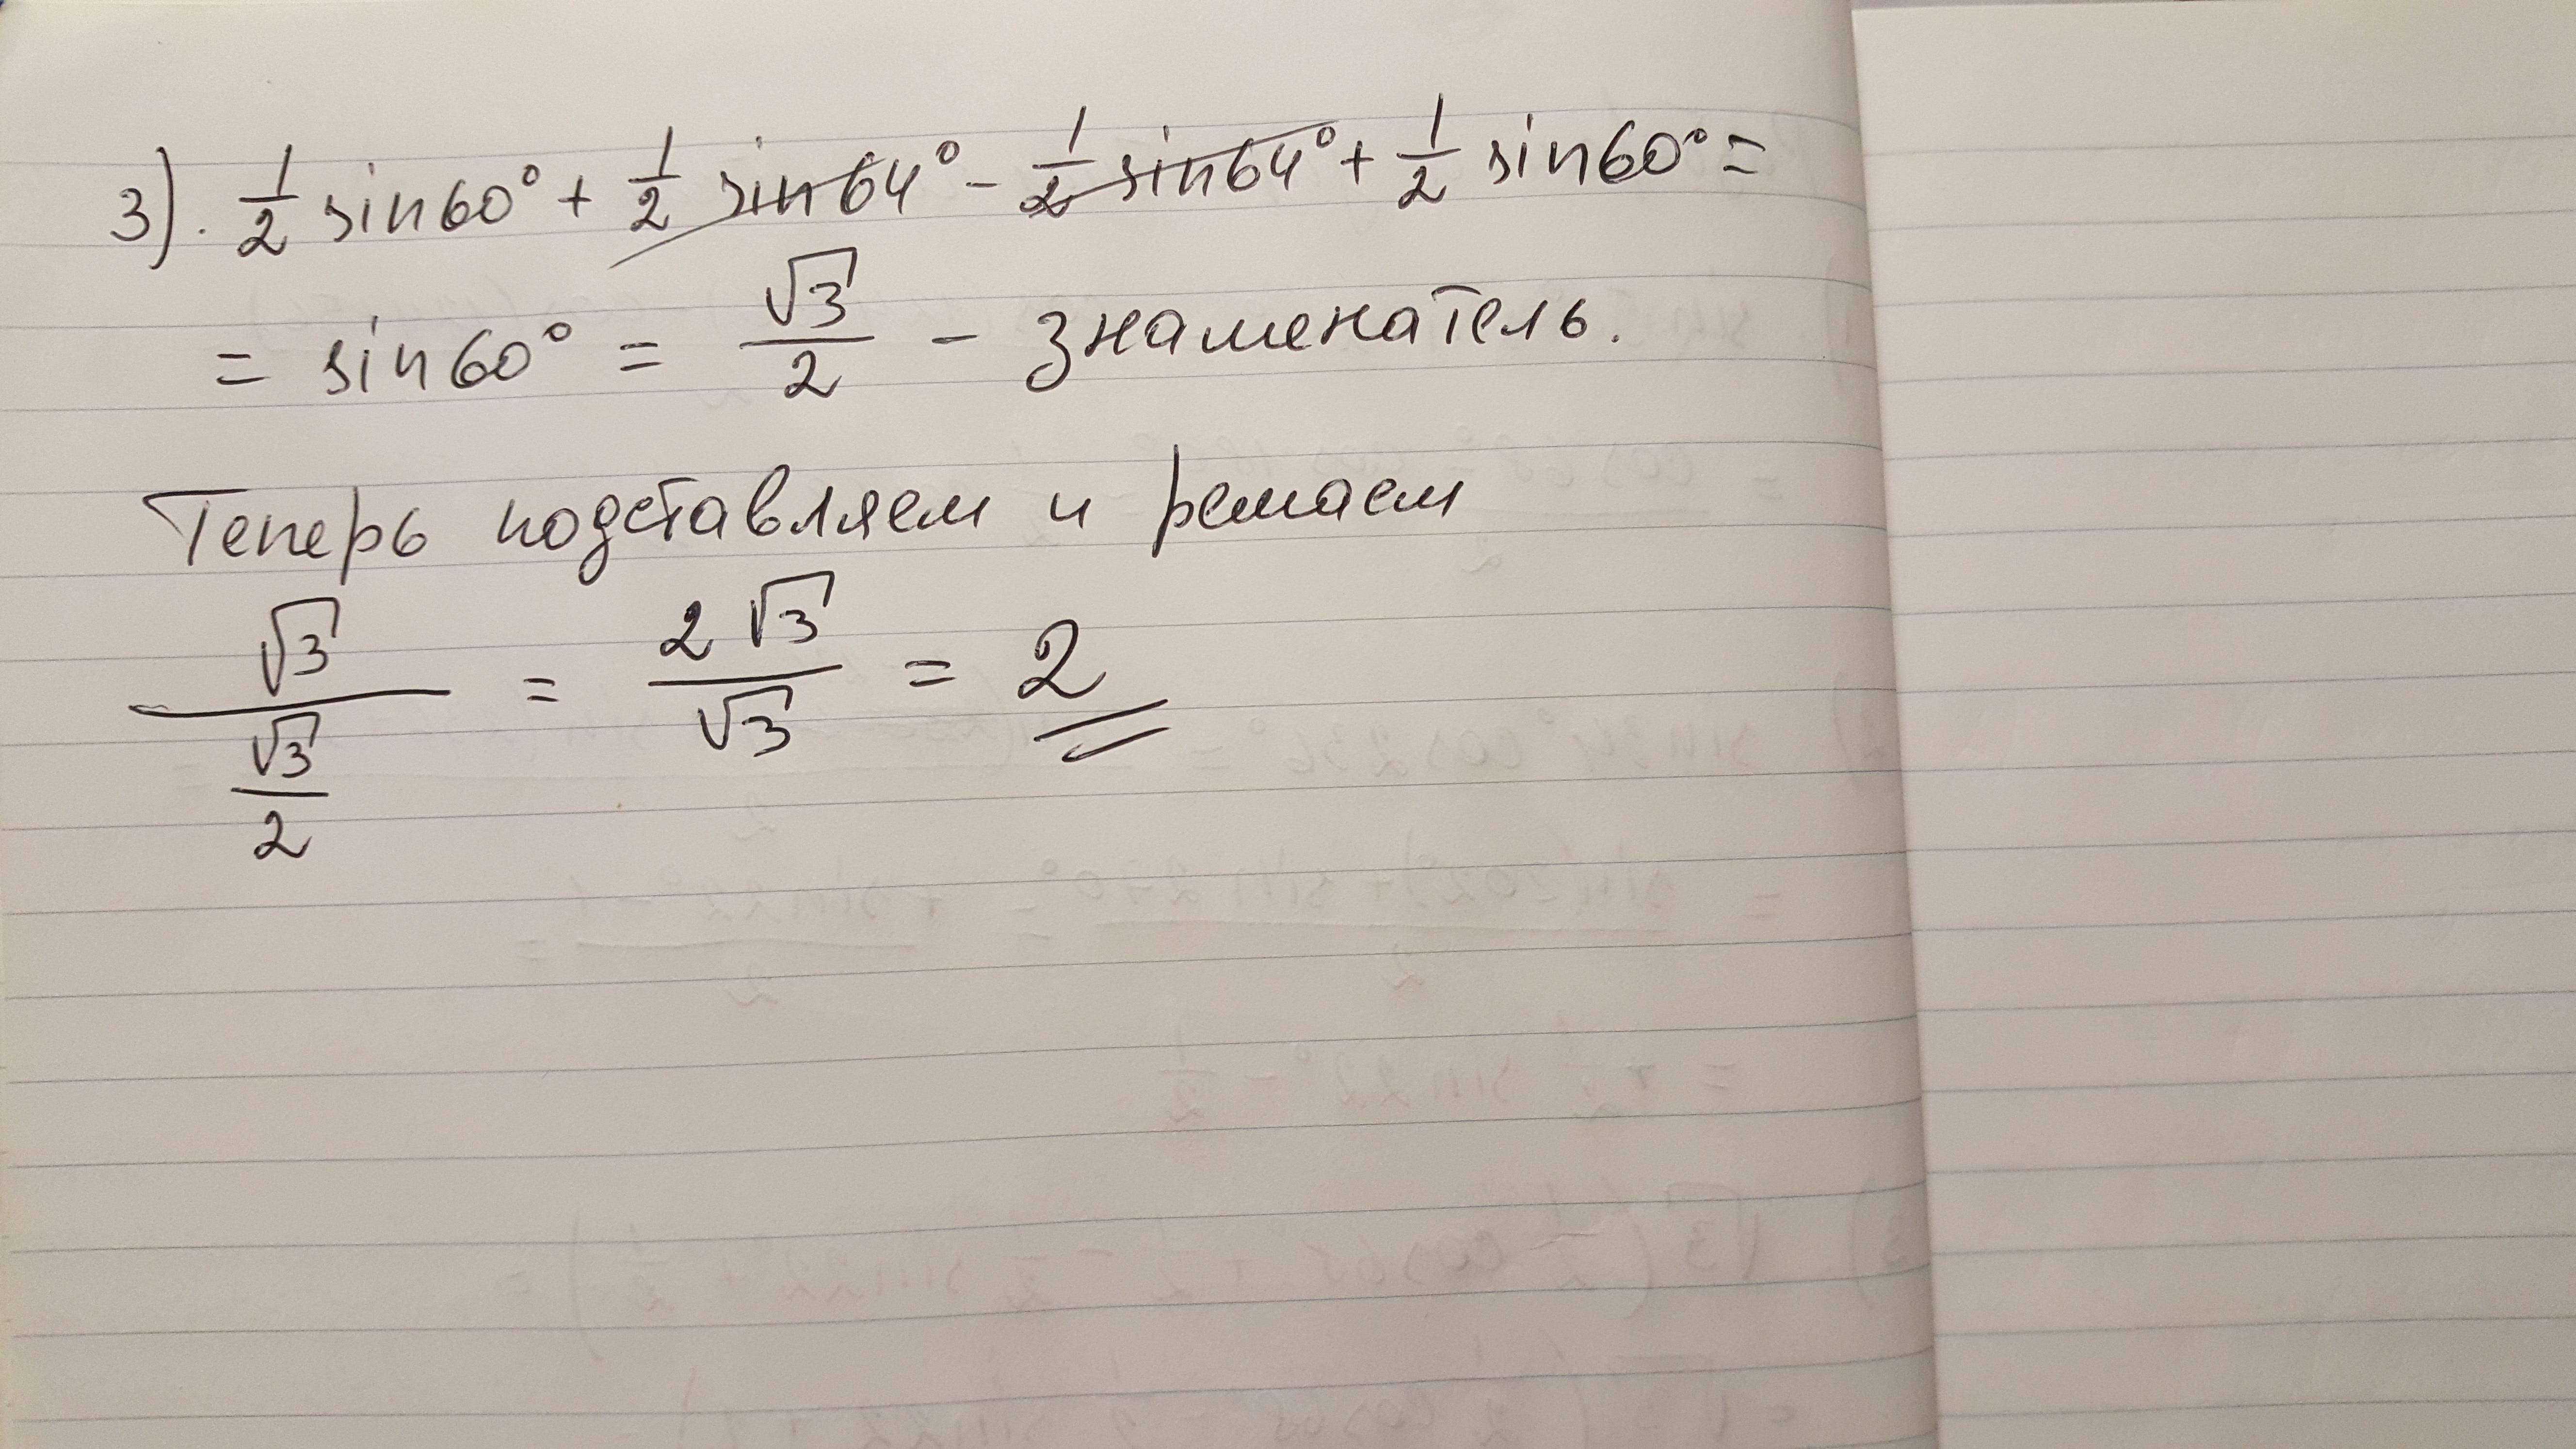 3). 1/2 sin60° + 1/2 sin64° - 1/2 sin64° + 1/2 sin60° =
= sin60° = √3/2 - знаменатель.
Теперь подставляем и решаем
√3/(√3/2) = 2√3/√3 = 2